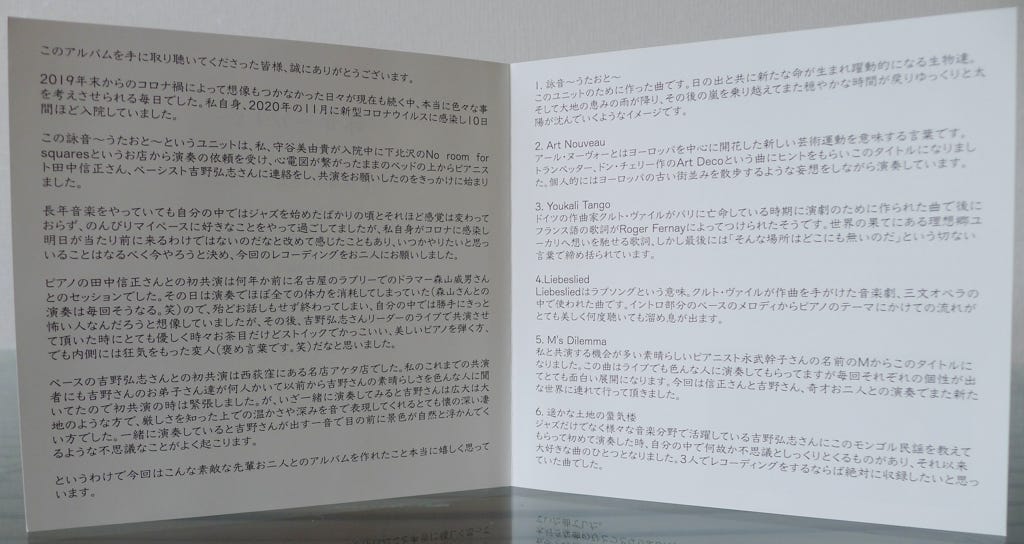 このアルバムを手に取り聴いてくださった皆様、誠にありがとうございます。
2019年末からのコロナ禍によって想像もつかなかった日々が現在も続く中、本当に色々な事
を考えさせられる毎日でした。私自身、2020年の11月に新型コロナウイルスに感染し10日
間ほど入院していました。
この詠音〜うたおと〜というユニットは、私、守谷美由貴が入院中に下北沢のNo room for
squaresというお店から演奏の依頼を受け、心電図が繋がったままのベッドの上からピアニス
ト田中信正さん、ベーシスト吉野弘志さんに連絡をし、共演をお願いしたのをきっかけに始まり
ました。
長年音楽をやっていても自分の中ではジャズを始めたばかりの頃とそれほど感覚は変わって
おらず、のんびりマイペースに好きなことをやって過ごしてましたが、私自身がコロナに感染し
明日が当たり前に来るわけではないのだなと改めて感じたこともあり、いつかやりたいと思っ
いることはなるべく今やろうと決め、今回のレコーディングをお二人にお願いしました。
ピアノの田中信正さんとの初共演は何年か前に名古屋のラブリーでのドラマー森山威男さん
とのセッションでした。その日は演奏でほぼ全ての体力を消耗してしまっていた(森山さんとの
演奏は毎回そうなる。笑)ので、殆どお話しもせず終わってしまい、自分の中では勝手にきっと
怖い人なんだろうと想像していましたが、その後、吉野弘志さんリーダーのライブで共演させ
て頂いた時にとても優しく時々お茶目だけどストイックでかっこいい、美しいピアノを弾く方、
でも内側には狂気をもった変人(褒め言葉です。笑)だなと思いました。
ベースの吉野弘志さんとの初共演は西荻窪にある名店アケタ店でした。私のこれまでの共演
者にも吉野さんのお弟子さん達が何人かいて以前から吉野さんの素晴らしさを色んな人に聞
いてたので初共演の時は緊張しました。が、いざ一緒に演奏してみると吉野さんは広大は大
地のような方で、厳しさを知った上での温かさや深みを音で表現してくれるとても懐の深い凄
い方でした。一緒に演奏していると吉野さんが出す一音で目の前に景色が自然と浮かんでく
るような不思議なことがよく起こります。
というわけで今回はこんな素敵な先輩お二人とのアルバムを作れたこと本当に嬉しく思って
います。
1. 詠音〜うたおと〜
このユニットのために作った曲です。日の出と共に新たな命が生まれ躍動的になる生物達。
そして大地の恵みの雨が降り、その後の嵐を乗り越えてまた穏やかな時間が戻りゆっくりと太
陽が沈んでいくようなイメージです。
2. Art Nouveau
アール・ヌーヴォーとはヨーロッパを中心に開花した新しい芸術運動を意味する言葉です。
トランペッター、ドン・チェリー作のArt Decoという曲にヒントをもらいこのタイトルになりまし
た。個人的にはヨーロッパの古い街並みを散歩するような妄想をしながら演奏しています。
3. Youkali Tango
ドイツの作曲家クルト・ヴァイルがパリに亡命している時期に演劇のために作られた曲で後に
フランス語の歌詞がRoger Fernayによってつけられたそうです。世界の果てにある理想郷ユ
ーカリへ想いを馳せる歌詞、しかし最後には「そんな場所はどこにも無いのだ」という切ない
言葉で締め括られています。
4.Liebeslied
Liebesliedはラブソングという意味。クルト・ヴァイルが作曲を手がけた音楽劇、三文オペラの
中で使われた曲です。イントロ部分のベースのメロディからピアノのテーマにかけての流れが
とても美しく何度聴いても溜め息が出ます。
5. M's Dilemma
私と共演する機会が多い素晴らしいピアニスト永武幹子さんの名前のMからこのタイトルに
なりました。この曲はライブでも色んな人に演奏してもらってますが毎回それぞれの個性が出
てとても面白い展開になります。今回は信正さんと吉野さん、奇才お二人との演奏でまた新た
な世界に連れて行って頂きました。
6. 遥かな土地の蜃気楼
ジャズだけでなく様々な音楽分野で活躍している吉野弘志さんにこのモンゴル民謡を教えて
もらって初めて演奏した時、自分の中で何故か不思議としっくりとくるものがあり、それ以来
大好きな曲のひとつとなりました。3人でレコーディングをするならば絶対に収録したいと思っ
ていた曲でした。